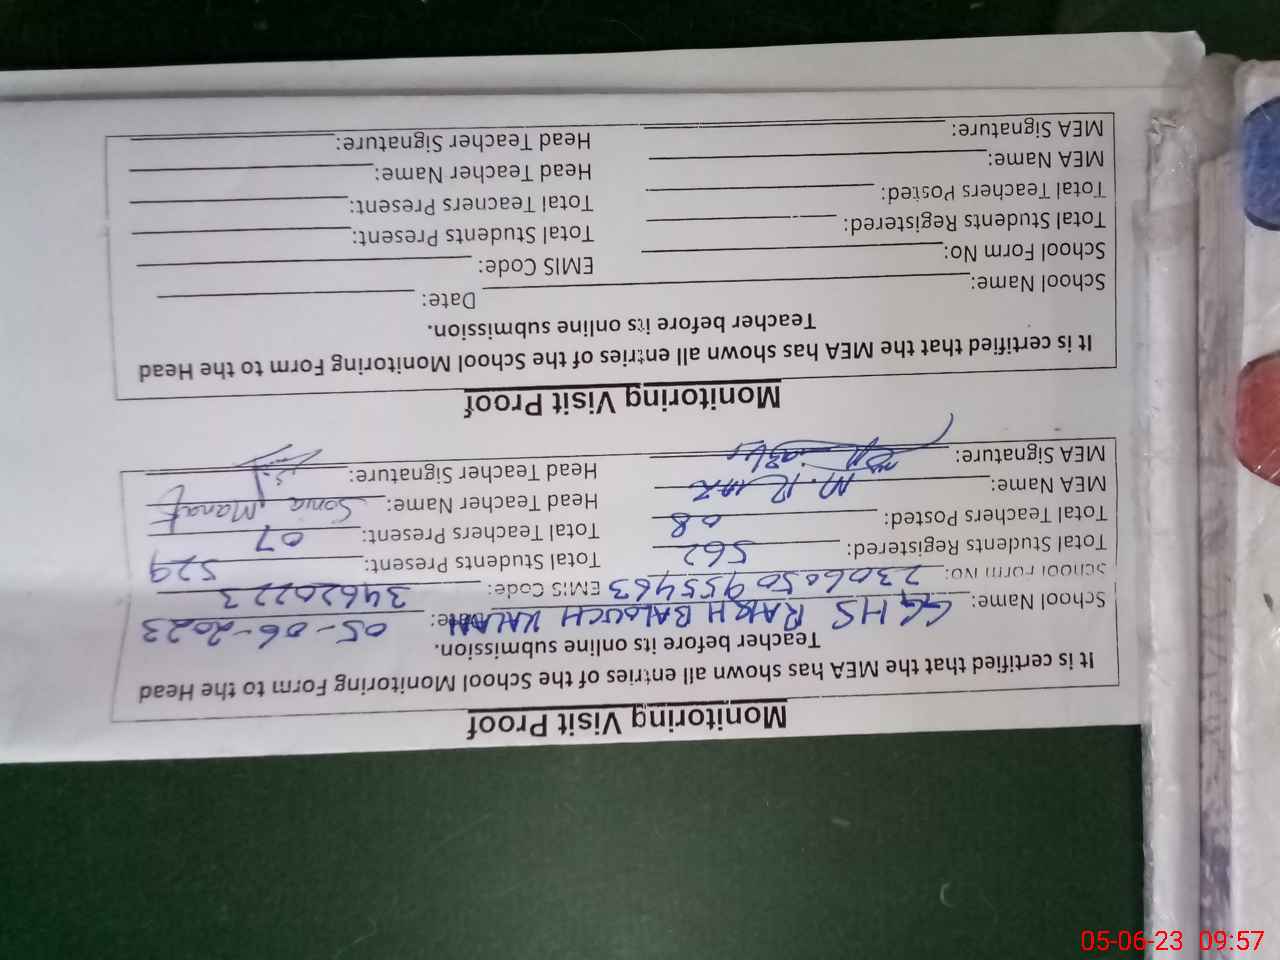 Monitoring Visit Proof
It is certified that the MEA has shown all entries of the School Monitoring Form to the Head
Teacher before its online submission.
School Name: GGHS RAKH BALOUCH KALAN Date: 05-06-2023
School Form No: 2306050955463 EMIS Code: 34620223
Total Students Registered: 562 Total Students Present: 529
Total Teachers Posted: 08 Total Teachers Present: 07
MEA Name: M. Riaz Head Teacher Name: Sonia Manaf
MEA Signature: Head Teacher Signature:
Monitoring Visit Proof
It is certified that the MEA has shown all entries of the School Monitoring Form to the Head
Teacher before its online submission.
School Name: Date:
School Form No: EMIS Code:
Total Students Registered: Total Students Present:
Total Teachers Posted: Total Teachers Present:
MEA Name: Head Teacher Name:
MEA Signature: Head Teacher Signature:
05-06-23 09:57